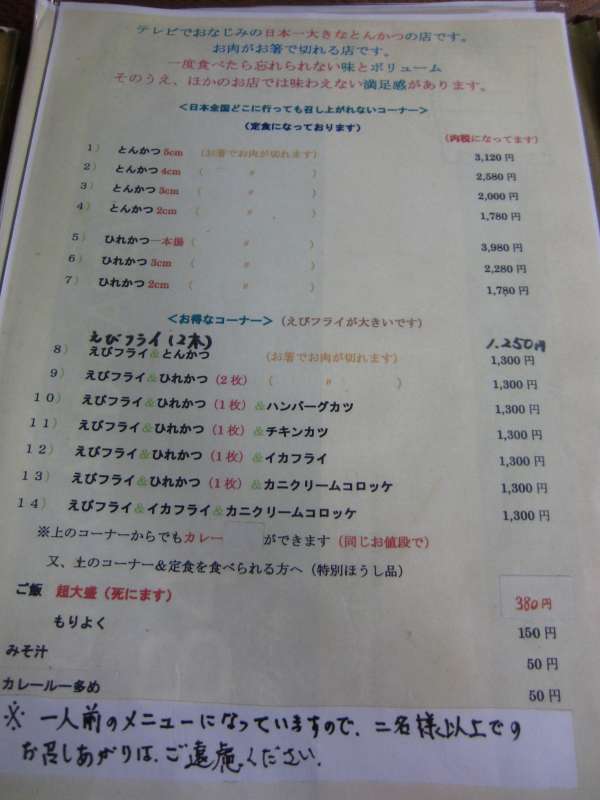 テレビでおなじみの日本一大きなとんかつの店です。
お肉がお箸で切れる店です。
一度食べたら忘れられない味とボリューム
そのうえ、ほかのお店では味わえない満足感があります。
＜日本全国どこに行っても召し上がれないコーナー＞
（定食になっております） （内税になってます）
1） とんかつ 5cm （お箸でお肉が切れます） 3,120 円
2） とんかつ 4cm （ 〃 ） 2,580 円
3） とんかつ 3cm （ 〃 ） 2,000 円
4） とんかつ 2cm （ 〃 ） 1,780 円
5） ひれかつ一本揚 （ 〃 ） 3,980 円
6） ひれかつ 3cm （ 〃 ） 2,280 円
7） ひれかつ 2cm （ 〃 ） 1,780 円
＜お得なコーナー＞（えびフライが大きいです）
えびフライ（2本） 1.250円
8） えびフライ＆とんかつ （お箸でお肉が切れます） 1,300 円
9） えびフライ＆ひれかつ（2 枚） （ 〃 ） 1,300 円
10） えびフライ＆ひれかつ（1 枚）＆ハンバーグカツ 1,300 円
11） えびフライ＆ひれかつ（1 枚）＆チキンカツ 1,300 円
12） えびフライ＆ひれかつ（1 枚）＆イカフライ 1,300 円
13） えびフライ＆ひれかつ（1 枚）＆カニクリームコロッケ 1,300 円
14） えびフライ＆イカフライ＆カニクリームコロッケ 1,300 円
※上のコーナーからでもカレー ができます（同じお値段で）
又、上のコーナー＆定食を食べられる方へ（特別ほうし品）
ご飯 超大盛（死にます） 380円
もりよく 150 円
みそ汁 50 円
カレールー多め 50 円
※ 一人前のメニューになっていますので、二名様以上での
お召しあがりは、ご遠慮ください.